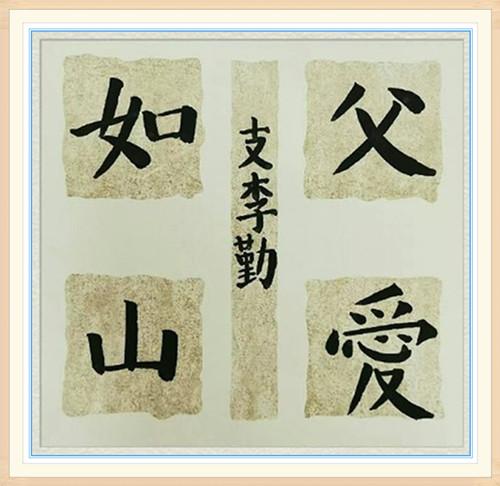 父愛
支李勤
如山